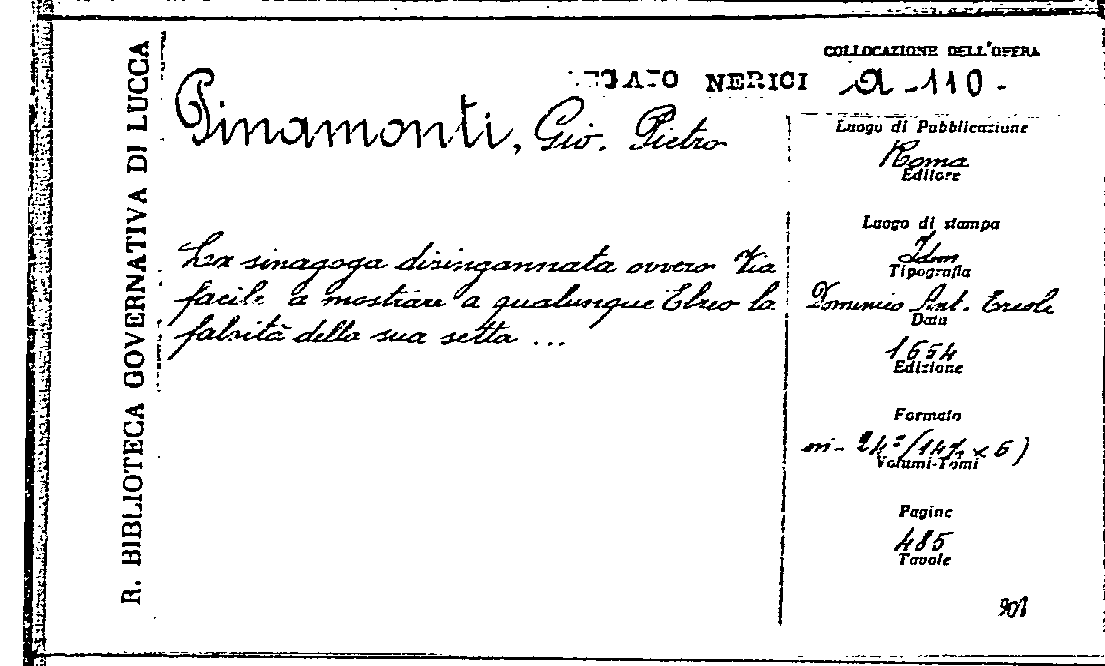 COLLOCAZIONE DELL'OPERA
LEGATO NERICI A-110-
R. BIBLIOTECA GOVERNATIVA DI LUCCA
Pinamonti, Gio. Pietro
La sinagoga disingannata ovvero Via
facile a mostrare a qualunque Ebreo la
falsità della sua setta ...
Luogo di Pubblicazione
Roma
Editore
Luogo di stampa
Idem
Tipografia
Domenico Ant. Ercole
Data
1694
Edizione
Formato
in-24°
Volumi-Tomi
Pagine
485
Tavole